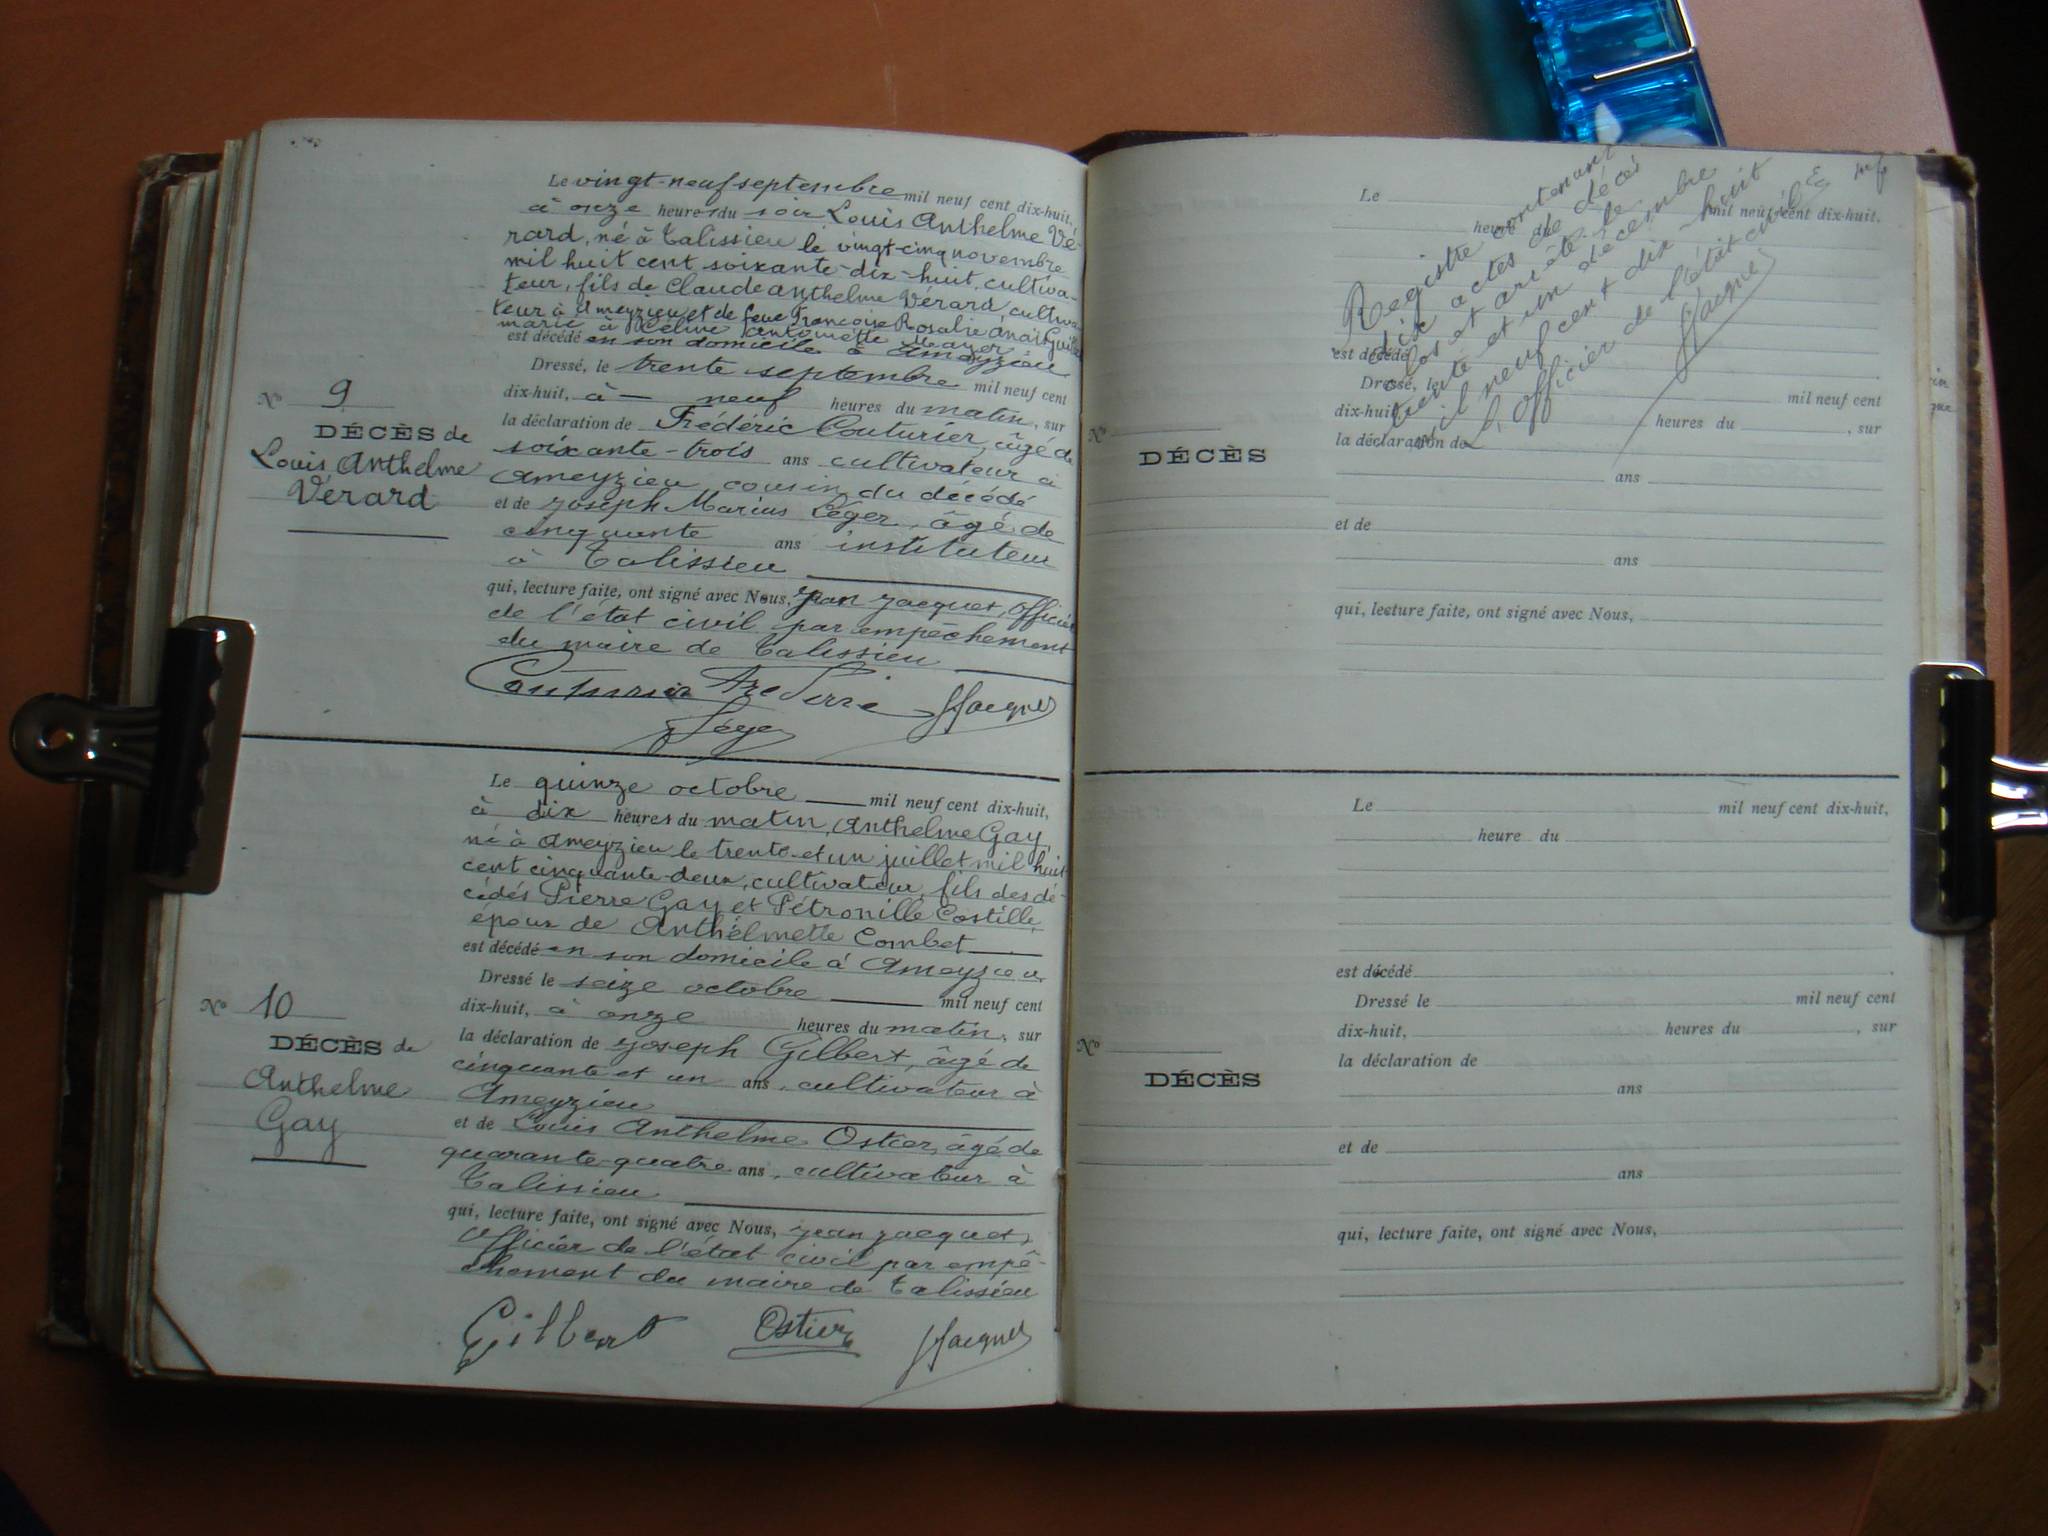 Le vingt-neuf septembre mil neuf cent dix-huit,
à onze heures du soir Louis Anthelme Vé-
rard, né à Talissieu le vingt-cinq novembre
mil huit cent soixante-dix-huit, cultiva-
teur, fils de Claude Anthelme Vérard, cultiva-
teur à Ameyzieu et de feue Françoise Rosalie Anaïs
marié à Céline Antoinette
est décédé en son domicile à Ameyzieu
Dressé, le trente septembre mil neuf cent
dix-huit, à — neuf heures du matin, sur
la déclaration de Frédéric Couturier, âgé de
soixante-trois ans cultivateur à
Ameyzieu, cousin du décédé
et de Joseph Marius Léger, âgé de
cinquante ans instituteur
à Talissieu
qui, lecture faite, ont signé avec Nous, Jean Jacquet, officier
de l'état civil par empêchement
du maire de Talissieu
Couturier Frederic JJacquet
Léger
No 9
DÉCÈS de
Louis Anthelme
Vérard
Le quinze octobre mil neuf cent dix-huit,
à dix heures du matin, Anthelme Gay,
né à Ameyzieu le trente-et-un juillet mil huit
cent cinquante-deux, cultivateur, fils des dé-
cédés Pierre Gay et Pétronille Costille,
époux de Anthelmette Combet
est décédé en son domicile à Ameyzieu
Dressé le seize octobre mil neuf cent
dix-huit, à onze heures du matin, sur
la déclaration de Joseph Gilbert, âgé de
cinquante et un ans, cultivateur à
Ameyzieu
et de Louis Anthelme Ostier, âgé de
quarante-quatre ans, cultivateur à
Talissieu
qui, lecture faite, ont signé avec Nous, Jean Jacquet,
officier de l'état civil par empê-
chement du maire de Talissieu
Gilbert Ostier JJacquet
No 10
DÉCÈS de
Anthelme
Gay
Registre contenant
dix actes de décès
clos et arrêté le
trente et un décembre
mil neuf cent dix-huit
L'officier de l'état civil
JJacquet
Le mil neuf cent dix-huit,
heure du
est décédé
Dressé, le mil neuf cent
dix-huit, heures du , sur
la déclaration de
ans
et de
ans
qui, lecture faite, ont signé avec Nous,
No
DÉCÈS
Le mil neuf cent dix-huit,
heure du
est décédé
Dressé le mil neuf cent
dix-huit, heures du , sur
la déclaration de
ans
et de
ans
qui, lecture faite, ont signé avec Nous,
No
DÉCÈS